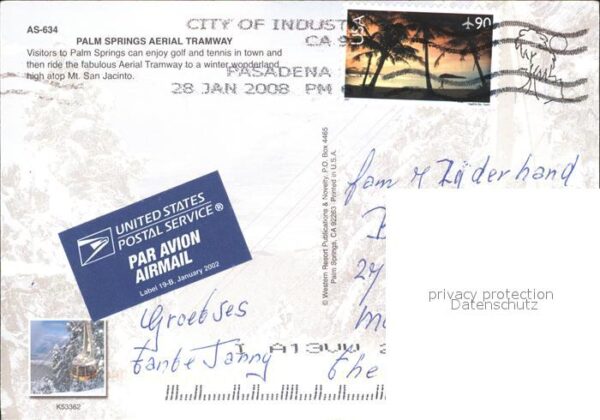 AS-634
PALM SPRINGS AERIAL TRAMWAY
Visitors to Palm Springs can enjoy golf and tennis in town and
then ride the fabulous Aerial Tramway to a winter wonderland
high atop Mt. San Jacinto.
CITY OF INDUST
CA 9
PASADENA
28 JAN 2008 PM
USA
90
UNITED STATES
POSTAL SERVICE®
PAR AVION
AIRMAIL
Label 19-B, January 2002
© Western Resort Publications & Novelty, P.O. Box 4465
Palm Springs, CA 92263 Printed in U.S.A.
Groetjes
tante Janny
fam
The
privacy protection
Datenschutz
K53362